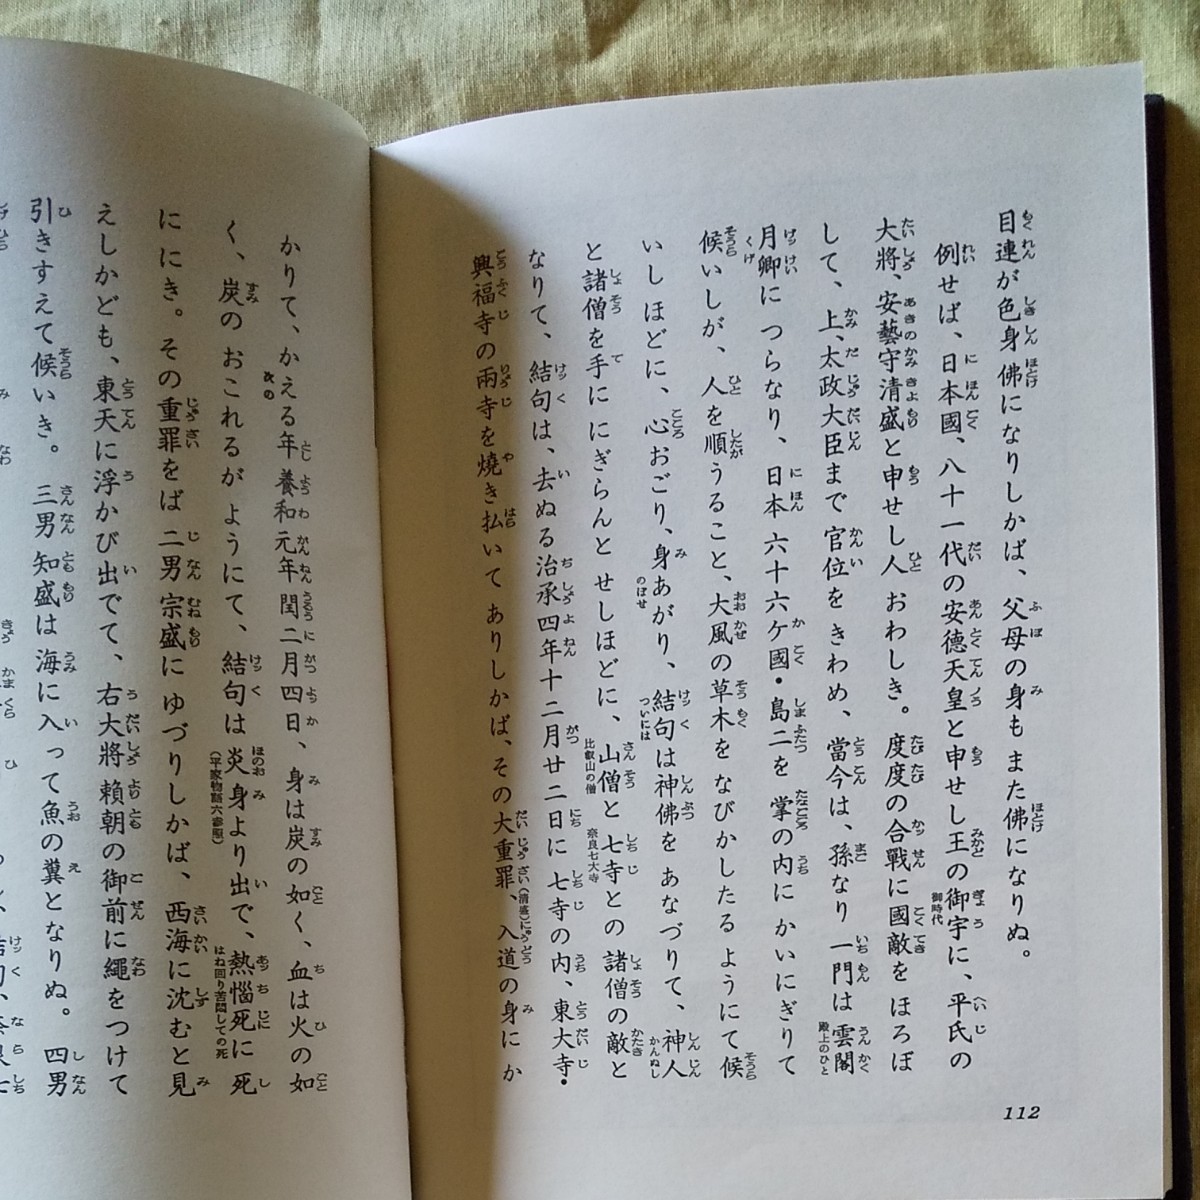 目連が色身佛になりしかば、父母の身もまた佛になりぬ。
例せば、日本國、八十一代の安德天皇と申せし王の御宇に、平氏の
大將、安藝守清盛と申せし人おわしき。度度の合戰に國敵をほろぼ
して、上、太政大臣まで官位をきわめ、當今は、孫なり一門は雲閣
月卿につらなり、日本六十六ケ國・島二を掌の内にかいにぎりて
候いしが、人を順うること、大風の草木をなびかしたるようにて候
いしほどに、心おごり、身あがり、結句は神佛をあなづりて、神人
と諸僧を手ににぎらんとせしほどに、山僧と七寺との諸僧の敵と
なりて、結句は、去ぬる治承四年十二月廿二日に七寺の内、東大寺・
興福寺の兩寺を燒き払いてありしかば、その大重罪、入道の身にか
112
かりて、かえる年養和元年閏二月四日、身は炭の如く、血は火の如
く、炭のおこれるがようにて、結句は炎身より出で、熱惱死に死
(平家物語六参照)
はね回り苦悶しての死
ににき。その重罪をば二男宗盛にゆづりしかば、西海に沈むと見
えしかども、東天に浮かび出でて、右大將賴朝の御前に繩をつけて
引きすえて候いき。三男知盛は海に入って魚の糞となりぬ。四男